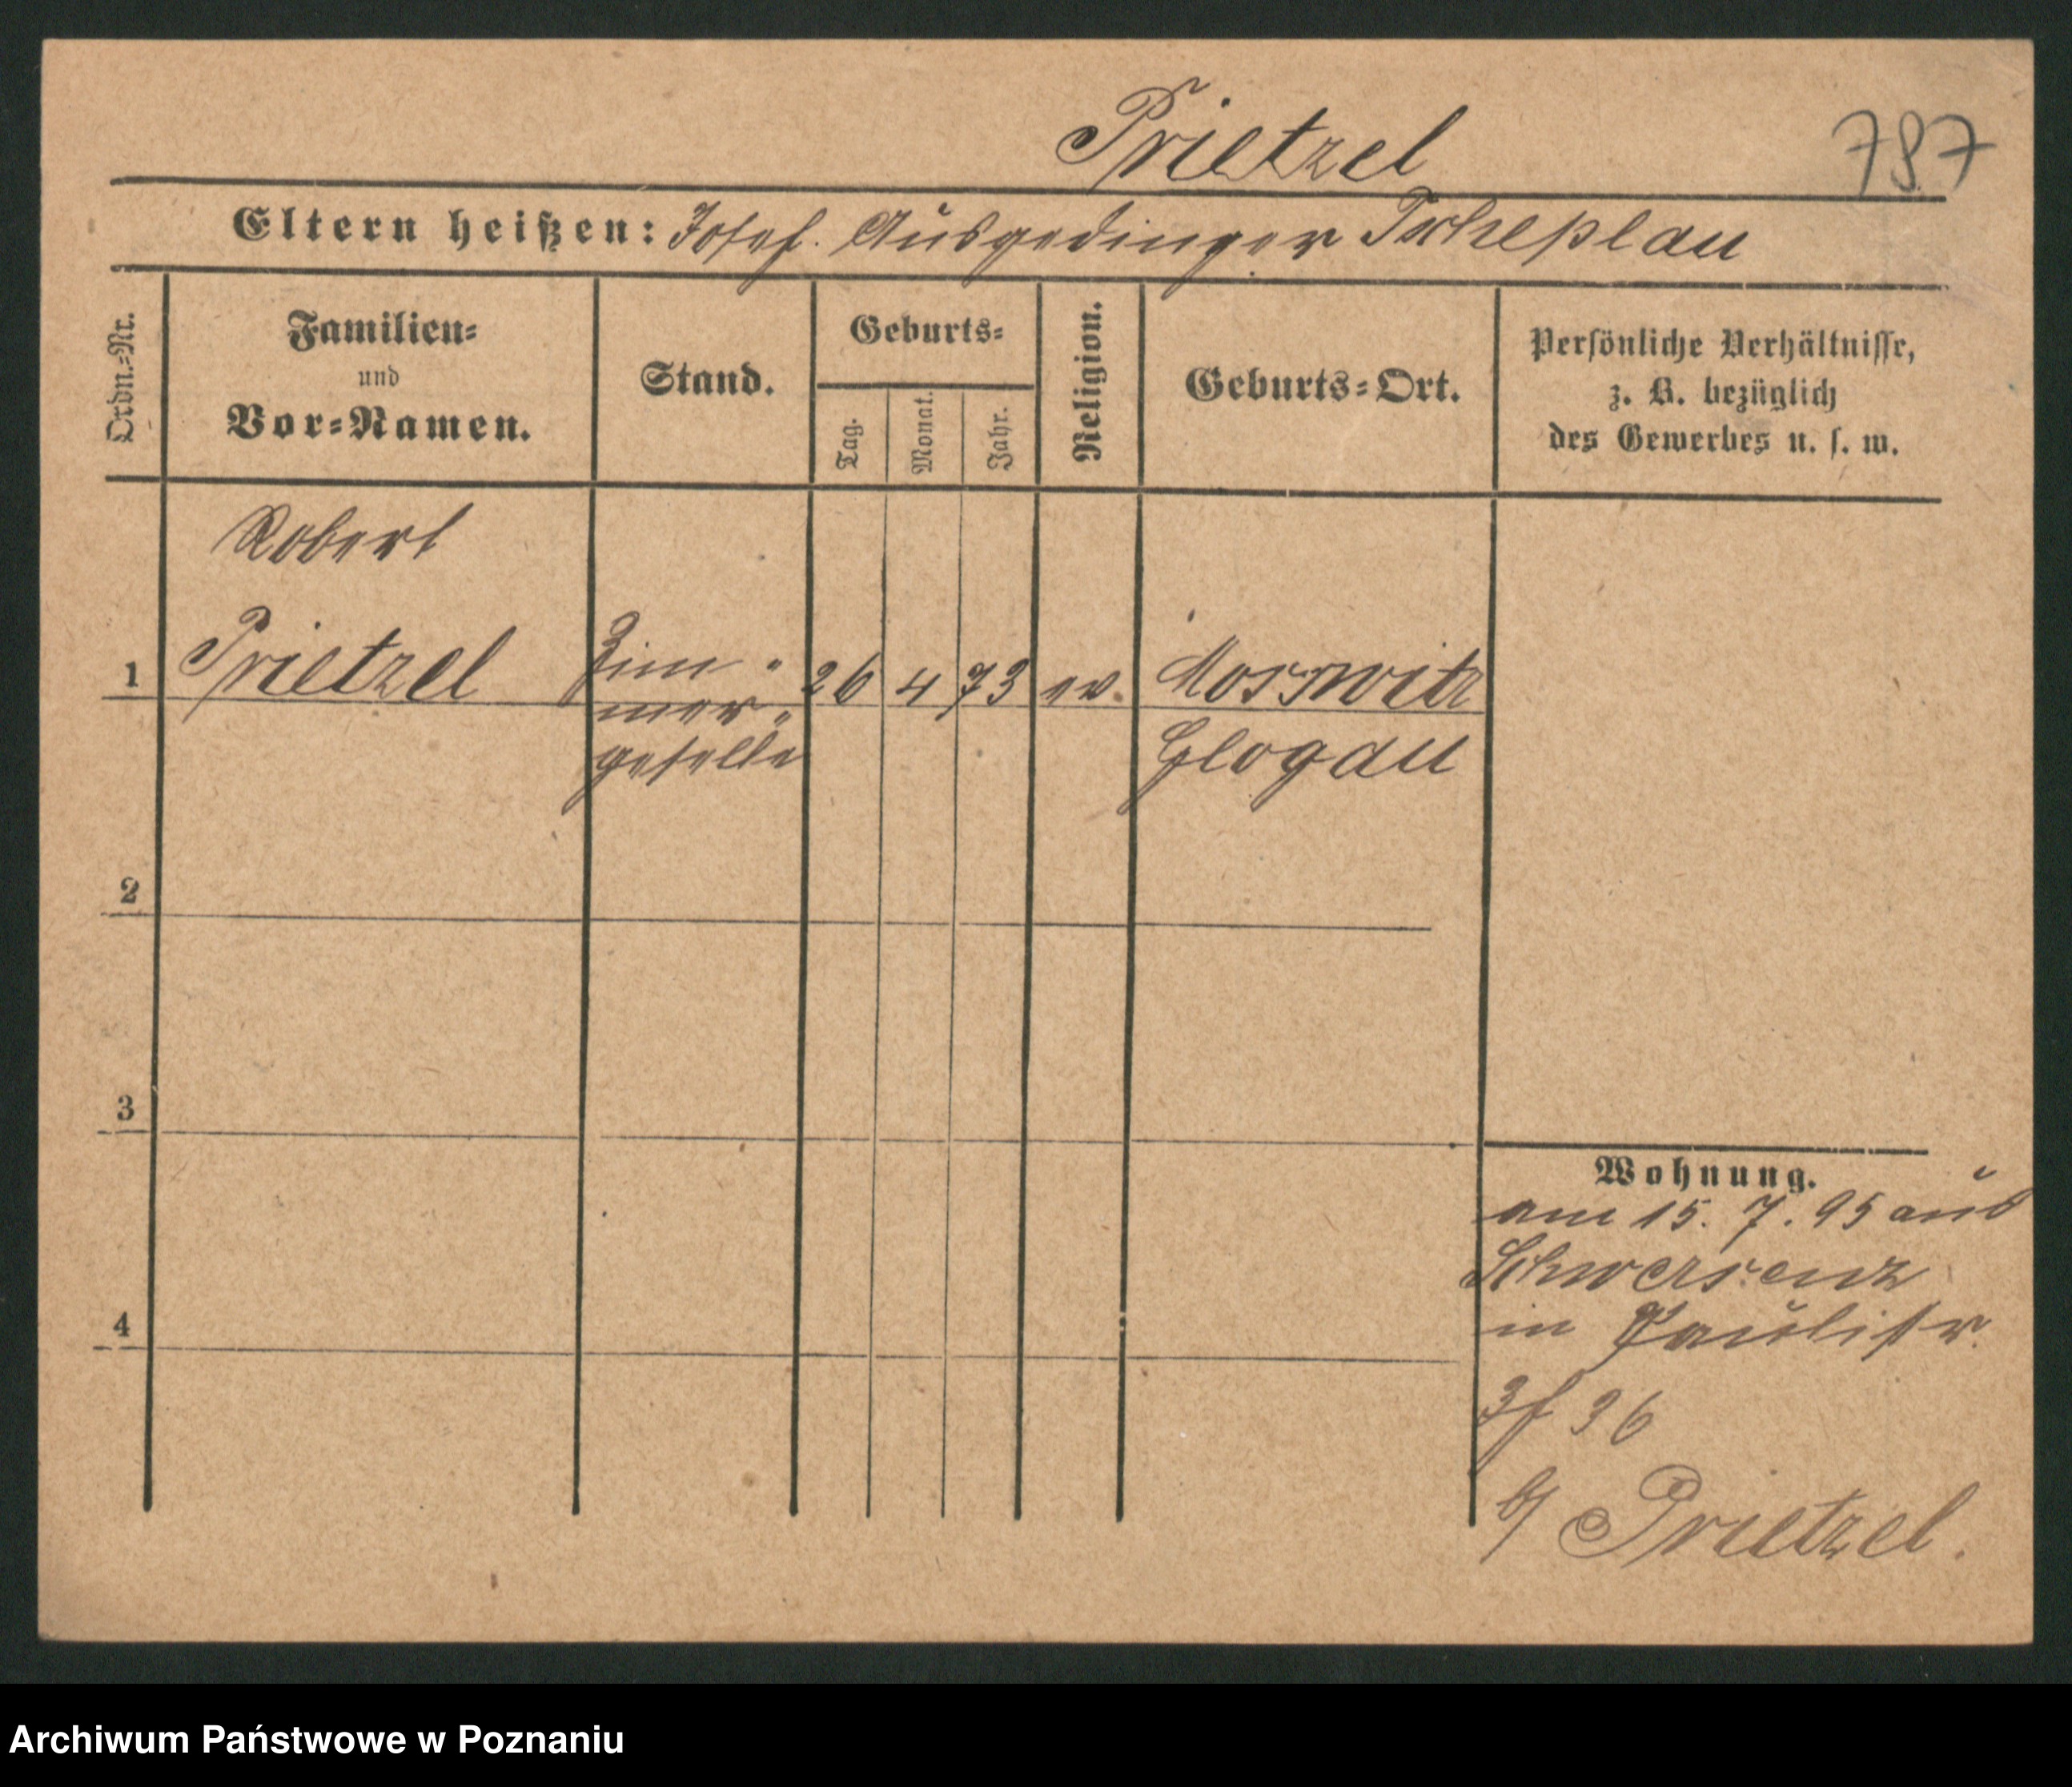 Prietzel
787
Eltern heißen: Josef. Ausgedinger Tscheplau
Ordn.=Nr.
Familien=
und
Vor=Namen.
Stand.
Geburts=
Tag.
Monat.
Jahr.
Religion.
Geburts=Ort.
Persönliche Verhältnisse,
z. B. bezüglich
des Gewerbes u. s. w.
Robert
1 Prietzel Zim= 26 4 73 ev. Moswitz
mer=
geselle
Glogau
2
3
4
Wohnung.
am 15. 7. 95 aus
Schwersenz
in Paulistr.
3f 36
b/ Prietzel.
Archiwum Państwowe w Poznaniu